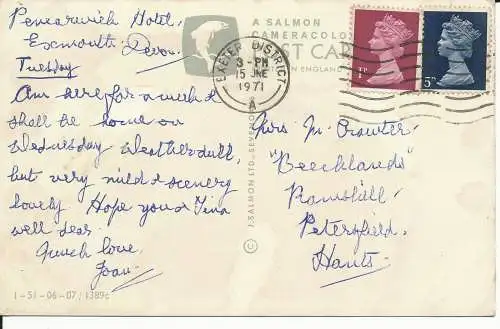 Penarwich Hotel,
Exmouth. Devon.
Tuesday
Am here for a week &
shall be home on
Wednesday Weather dull,
but very mild & scenery
lovely Hope you & Tina
well dear.
much love,
Joan.
1-51-06-07/1389c
A SALMON
CAMERACOLO
POST CAR
IN ENGLAND
EXETER DISTRICT
3-PM
15 JNE
1971
A
J. SALMON LTD., SEVENO
©
1P
5P
Mrs M. Crowter,
"Beechlands"
Ramshill,
Petersfield,
Hants.